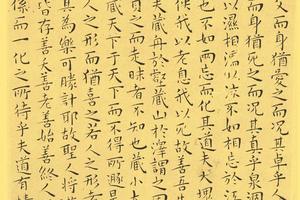 父而身猶愛之而况其卓乎人
而身猶死之而况其真乎泉涸
以濕相濡以沫不如相忘於江
也不如兩忘而化其道夫大塊
佚我以老息我以死故善吾生
藏舟於壑藏山於澤謂之固
負之而走昧者不知也藏小大
藏天下于天下而不得所遯是
人之形而猶喜之若人之形者
其為樂可勝計耶故聖人將遊
皆存善夭善老善始善終人
係而一化之所待乎夫道有情